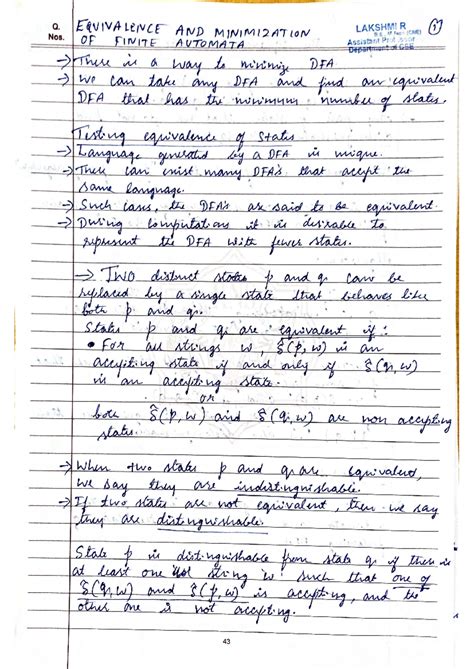 Q.
Nos.
EQUIVALENCE AND MINIMIZATION
OF FINITE AUTOMATA
LAKSHMI R
Assistant Professor
Department of CSE
1
→ There is a way to minimize DFA
→ We can take any DFA and find an equivalent
DFA that has the minimum number of states.
Testing equivalence of States
→ Language generated by a DFA is unique.
→ There can exist many DFA's that accept the
same language.
→ Such cases, the DFA's are said to be equivalent.
→ During computations it is desirable to
represent the DFA with fewer states.
→ Two distinct states p and q can be
replaced by a single state that behaves like
both p and q.
States p and q are equivalent if:
• For all strings w, δ̂(p, w) is an
accepting state if and only if δ̂(q, w)
is an accepting state.
or
both δ̂(p, w) and δ̂(q, w) are non accepting
states.
→ When two states p and q are equivalent,
we say they are indistinguishable.
→ If two states are not equivalent, then we say
they are distinguishable.
State p is distinguishable from state q if there is
at least one string w such that one of
δ̂(q, w) and δ̂(p, w) is accepting, and the
other one is not accepting.
43